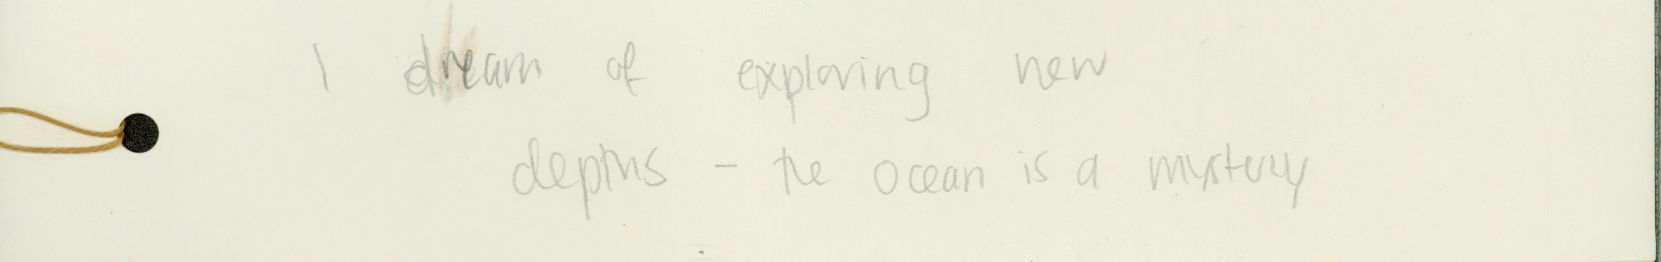 I dream of exploring new
depths - the ocean is a mystery